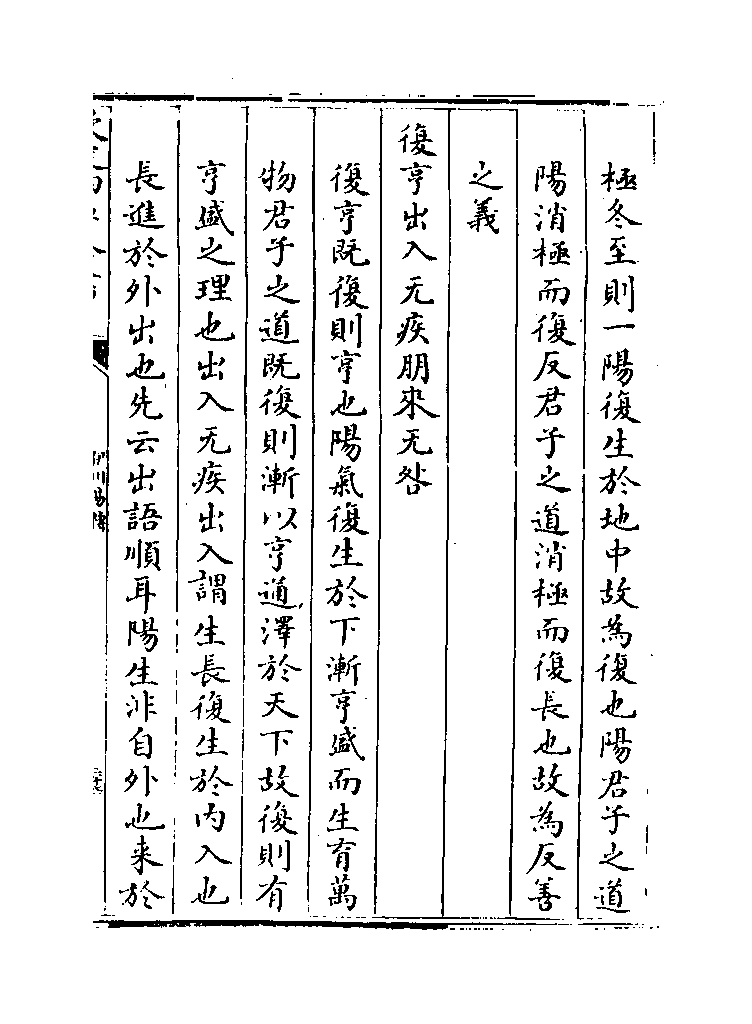 極冬至則一陽復生於地中故為復也陽君子之道
陽消極而復反君子之道消極而復長也故為反善
之義
復亨出入无疾朋來无咎
復亨既復則亨也陽氣復生於下漸亨盛而生育萬
物君子之道既復則漸以亨通澤於天下故復則有
亨盛之理也出入无疾出入謂生長復生於内入也
長進於外出也先云出語順耳陽生非自外也来於
伊川易傳